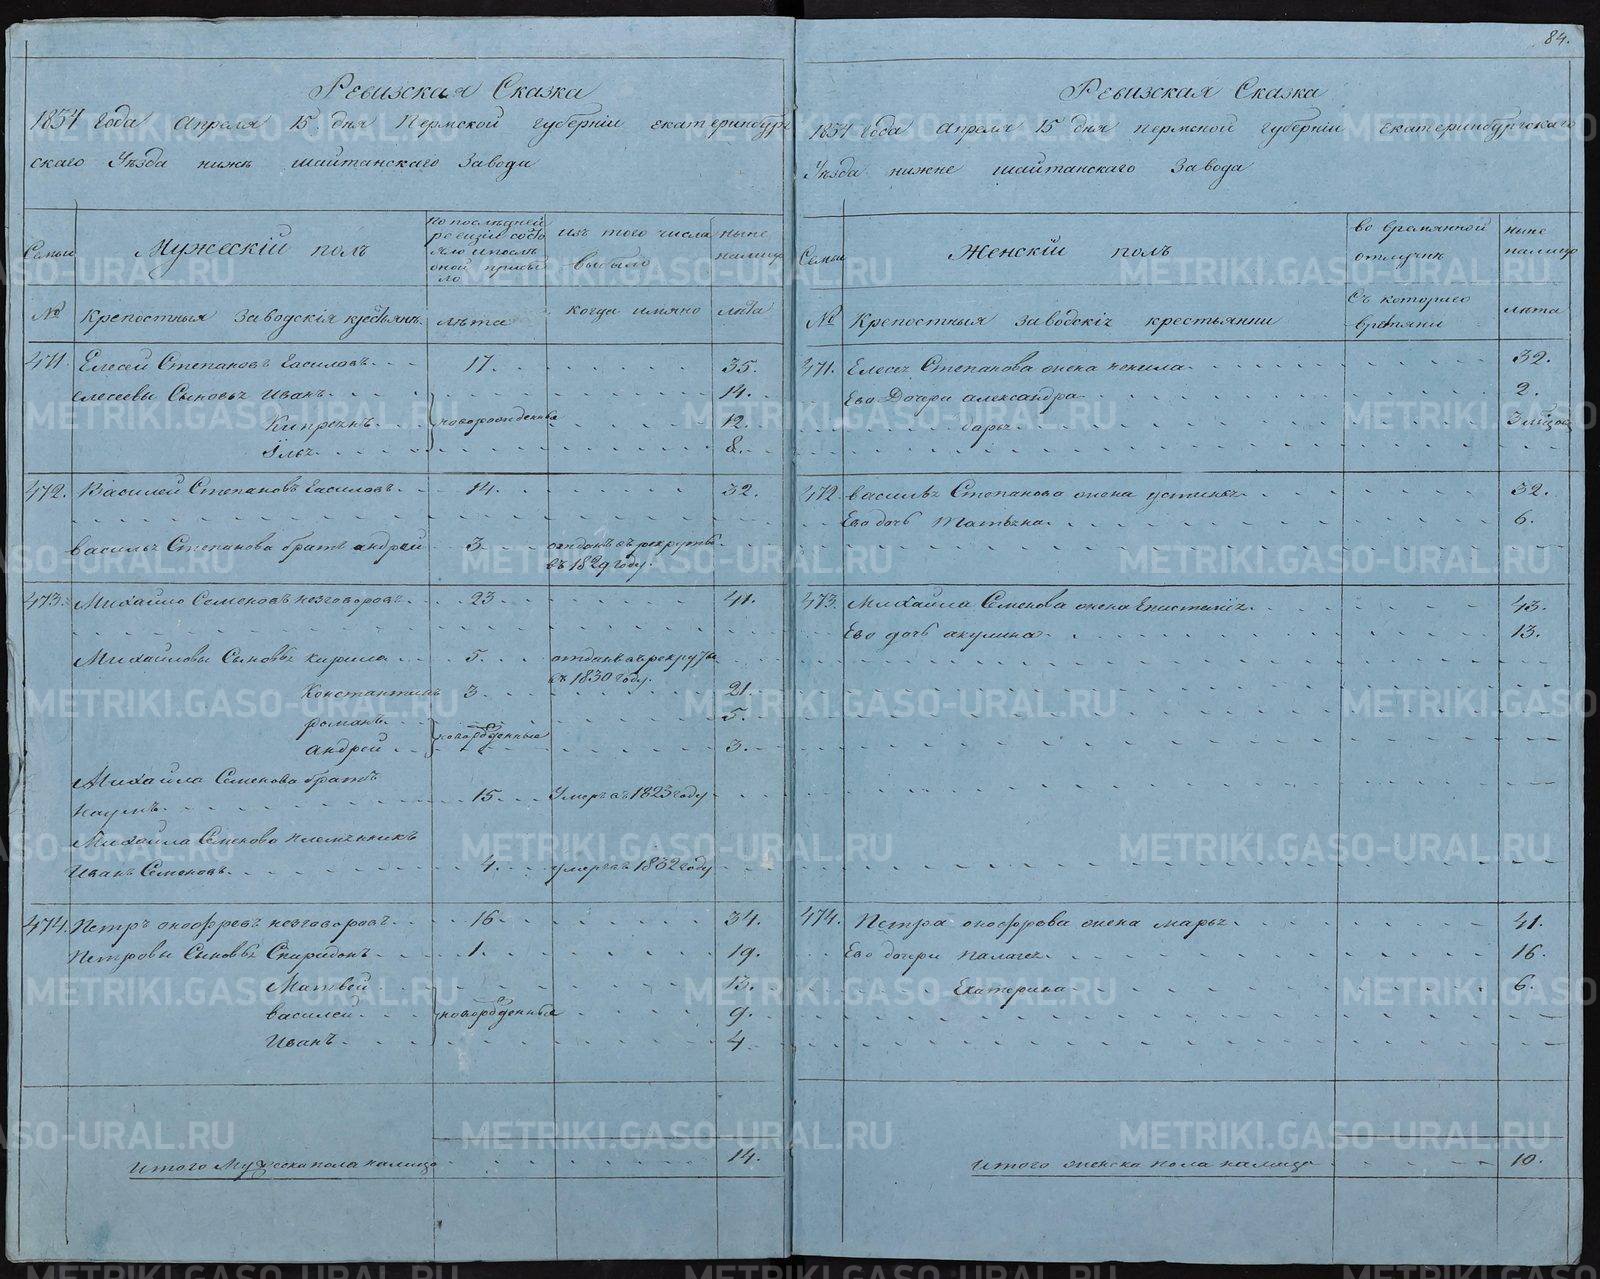 84.
Ревизская Сказка
1834 года Апреля 15 дня Пермской губернiи екатеринбург
скаго Уѣзда нижне шайтанскаго Завода
Семьи
Мужескiй полъ
По последней
ревизiи состо
яло и после
оной прибы
ло
изъ того числа
выбыло
ныне
налицо
№
Крепостныя Заводскiя крестьяне
лѣта
когда имянно
лѣта
471. Елесей Степановъ Гасиловъ 17. 35.
елесеевы Сыновья Иванъ 14.
Кипрянъ новорожденные 12.
Илья 8.
472. Василей Степановъ Гасиловъ 14. 32.
василья Степанова братъ андрей 3. отданъ въ рекруты
въ 1829 году.
473. Михайло Семеновъ незговоровъ 23 41.
Михайловы Сыновья кирила 5. отданъ въ рекруты
въ 1830 году.
Константинъ 3. 21.
романъ 5.
новорожденные
андрей 3.
Михайла Семенова братъ
наумъ 15. Умеръ въ 1823 году
Михайла Семенова племянникъ
Иванъ Семеновъ 4. умеръ въ 1832 году
474. Петръ онофревъ незговоровъ 16 34.
Петровы Сыновья Спиридонъ 1. 19.
Матвей 13.
василей новорожденные 9.
Иванъ 4.
итого Мужеска пола налицо 14.
Ревизская Сказка
1834 года апреля 15 дня пермской губернiи екатеринбургскаго
Уѣзда нижне шайтанскаго Завода
Семьи
Женскiй полъ
во времянной
отлучки
ныне
налицо
№
Крепостныя заводскiя крестьянки
Съ котораго
времяни
лѣта
471. Елесея Степанова жена ненила 32.
Ево Дочери александра 2.
3 мѣсяца
472 василья Степанова жена устинья 32.
Ево дочь татьяна 6.
473. Михайла Семенова жена Епистимiя 43.
Ево дочь акулина 13.
474. Петра онофрова жена марья 41.
Ево дочери палагея 16.
Екатерина 6.
итого женска пола налицо 10.
METRIKI.GASO-URAL.RU